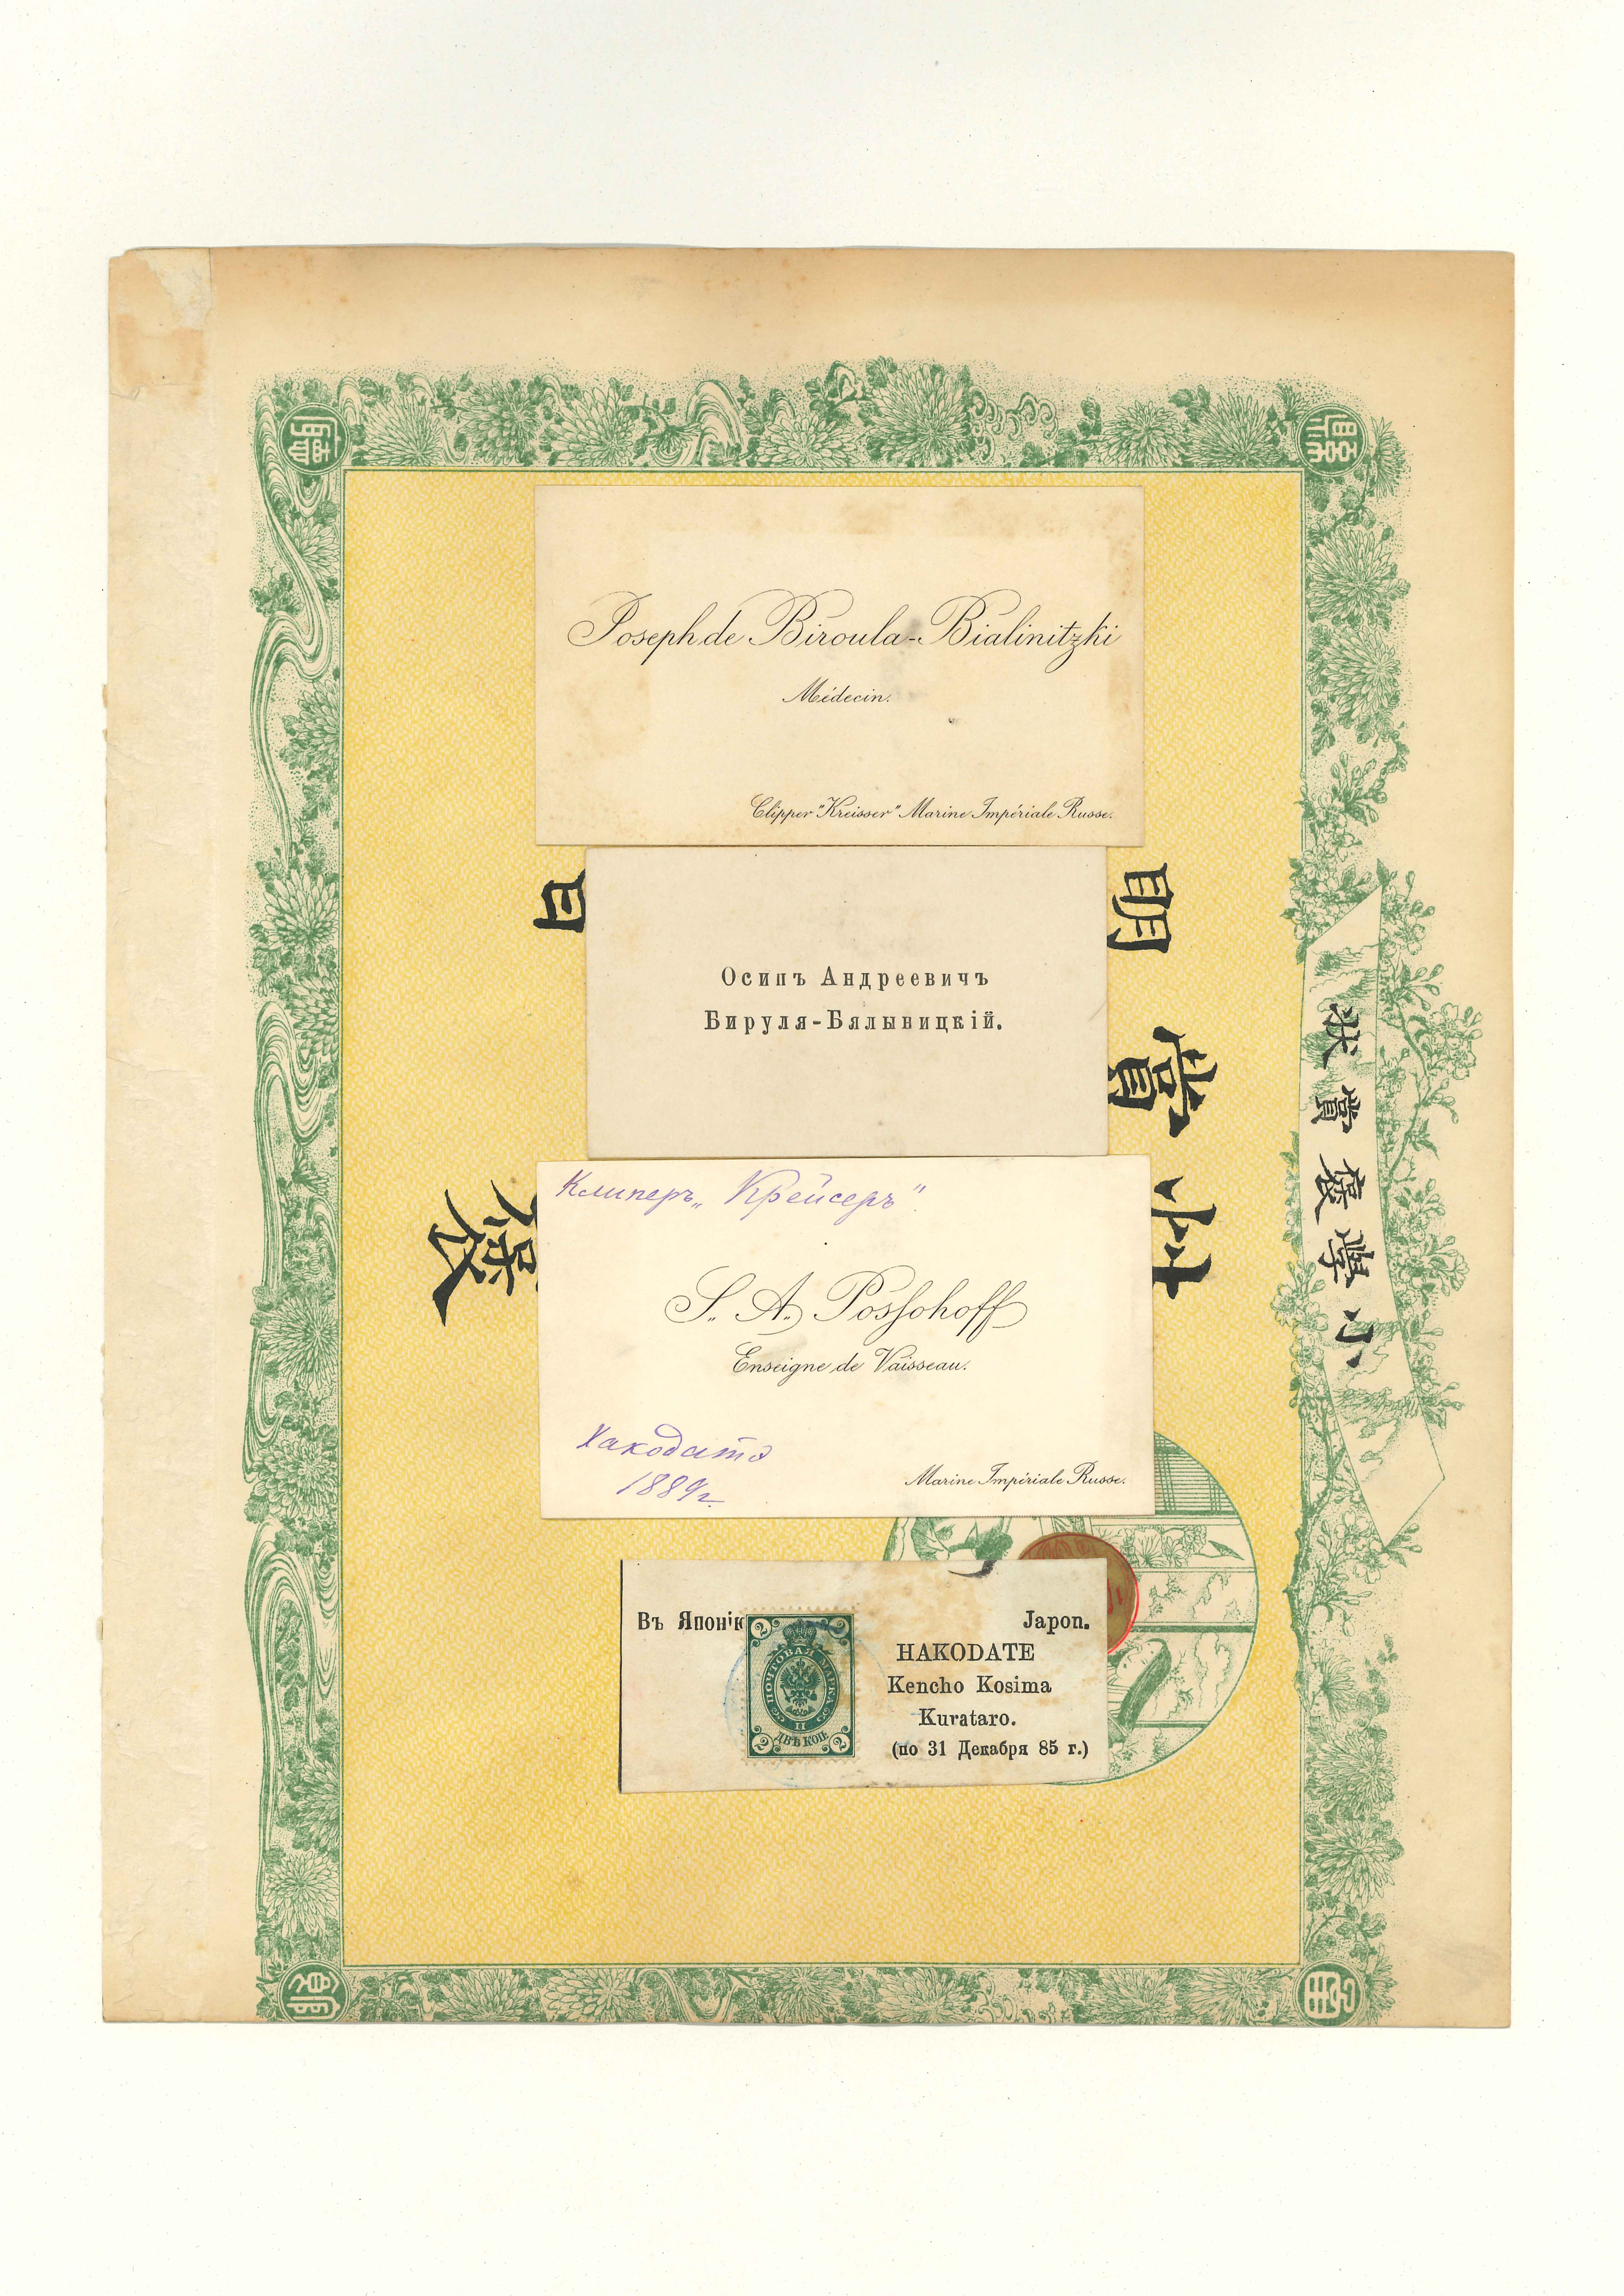 Joseph de Biroula-Bialinitzki
Médecin.
Clipper "Kreisser" Marine Impériale Russe.
日
明
賞
Осипъ Андреевичъ
Бируля-Бялыницкій.
小學褒賞状
Клиперъ „Крейсеръ"
S. A. Possohoff
Enseigne de Vaisseau.
Хакодатэ
1889 г.
Marine Impériale Russe.
Въ Японі
Japon.
HAKODATE
Kencho Kosima
Kurataro.
(по 31 Декабря 85 г.)
2 2
ПОЧТОВАЯ МАРКА
ДВѢ КОП.
2 2